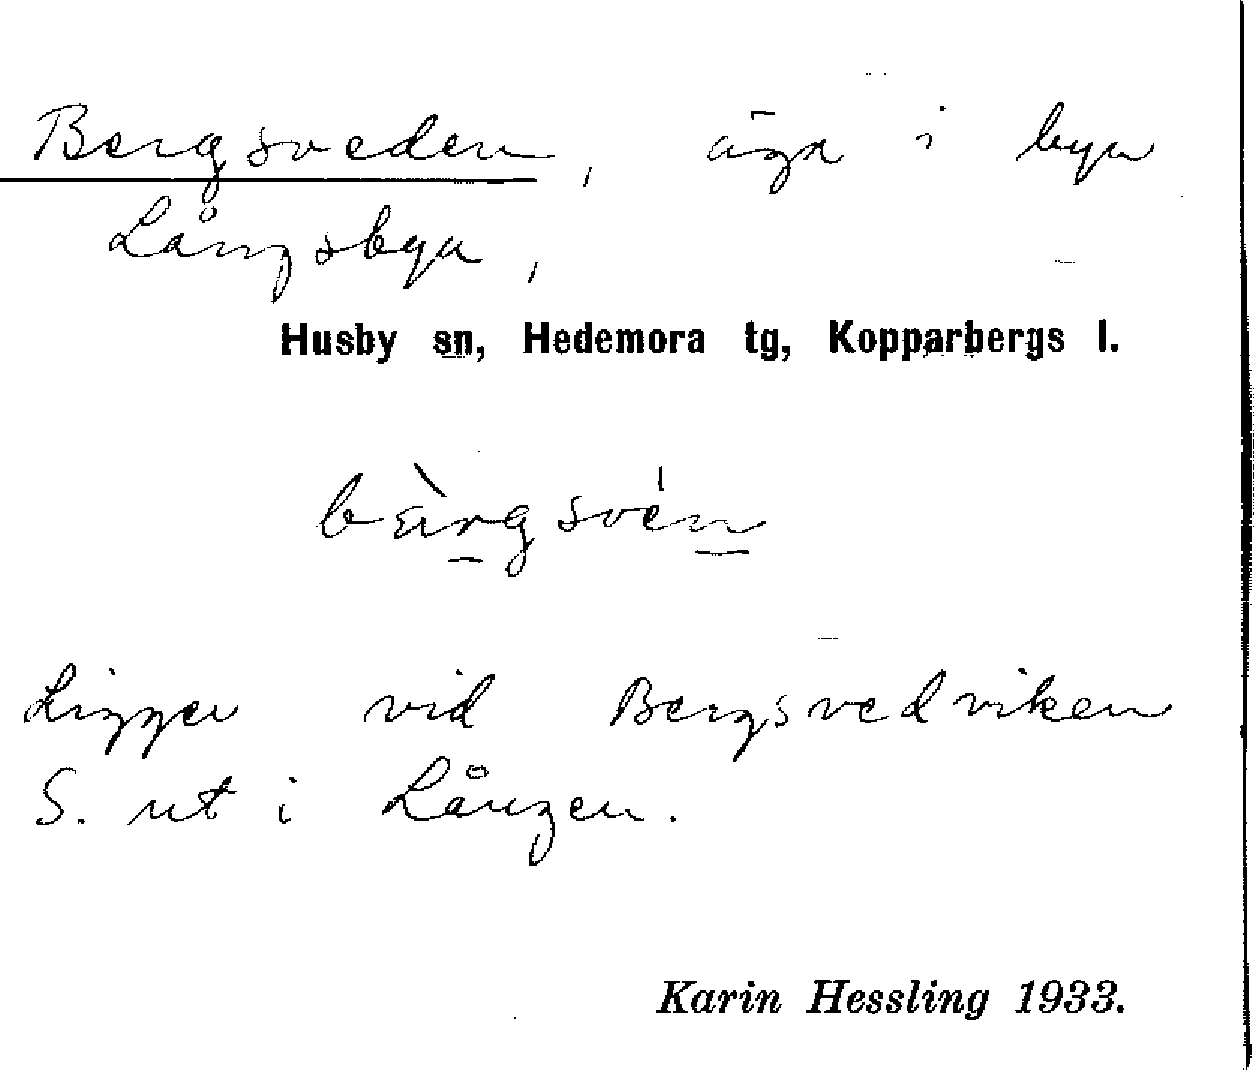 Bergsveden, äga i byn
Långsbyn,
Husby sn, Hedemora tg, Kopparbergs l.
bàrgsvén
Ligger vid Bergsvedviken
S. ut i Lången.
Karin Hessling 1933.